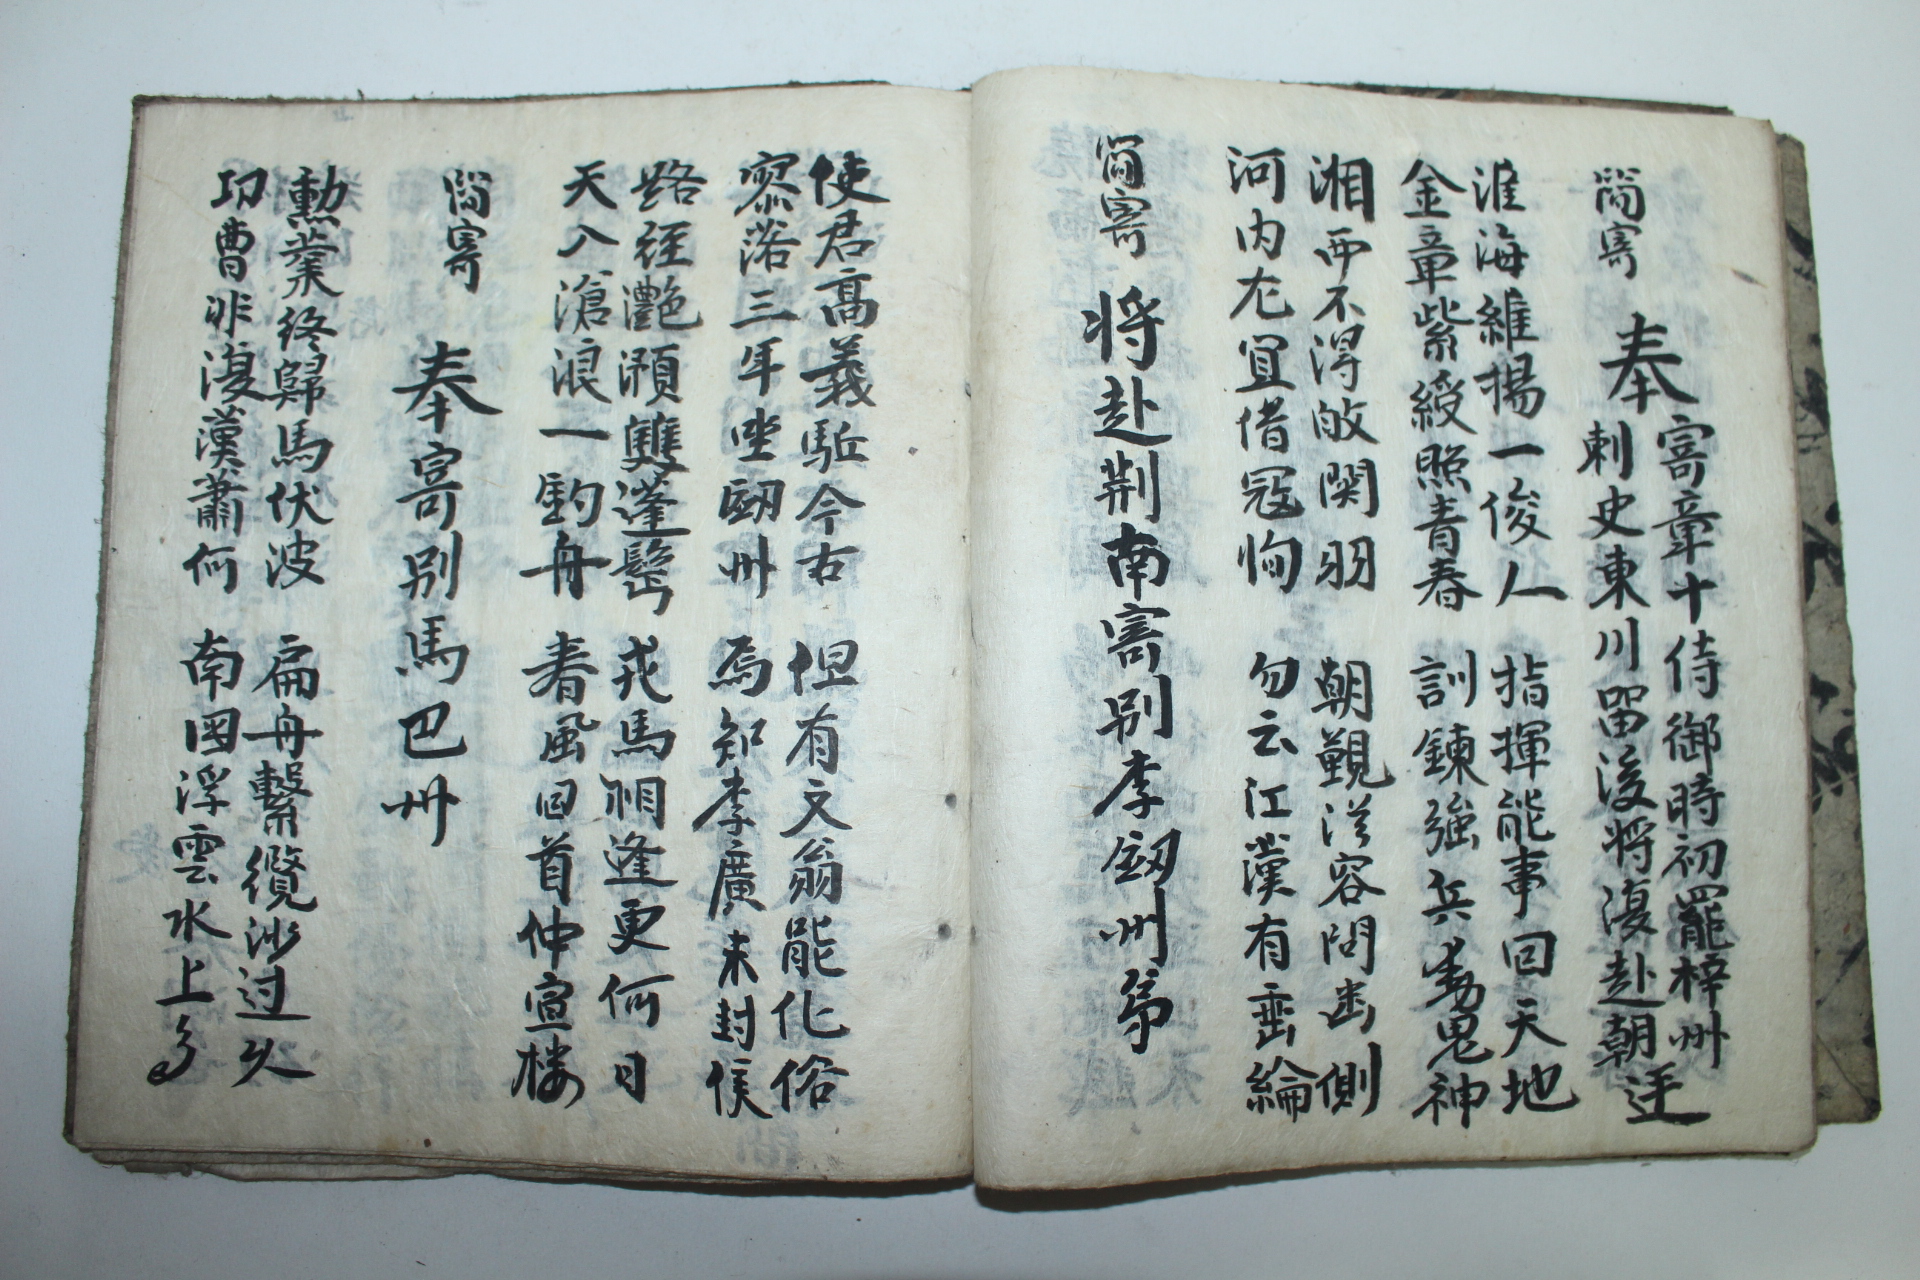 簡寄 奉
寄章十侍御時初罷梓州
刺史東川留後将復赴朝廷
淮海維揚一俊人 指揮能事回天地
金章紫綬照青春 訓鍊強兵動鬼神
湘西不得敀関羽 朝覲從容問幽側
河内尤宜借寇恂 勿云江漢有垂綸
簡寄 将赴荆南寄别李劒州弟
使君高義駈今古 但有文翁能化俗
寥落三年坐劒州 焉知李廣未封侯
路経灩澦雙蓬鬂 戎馬相逢更何日
天入滄浪一釣舟 春風回首仲宣楼
簡寄 奉寄别馬巴州
勲業終歸馬伏波 扁舟繋纜沙过久
功曹非復漢蕭何 南国浮雲水上多